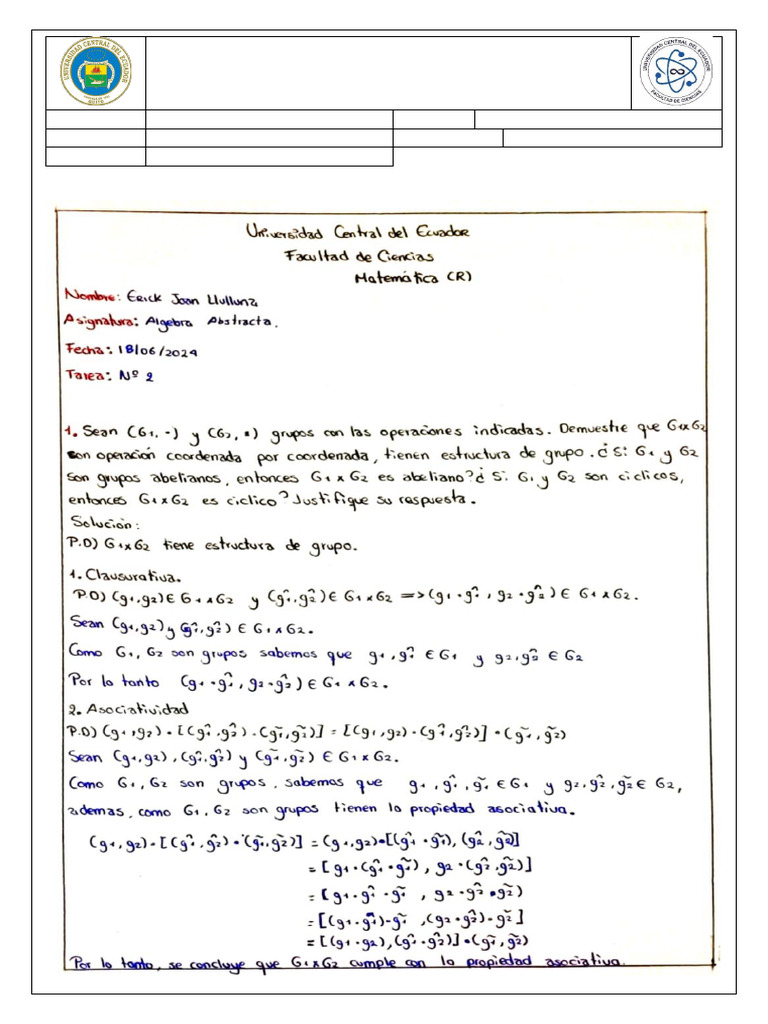 UNIVERSIDAD CENTRAL DEL ECUADOR
QUITO
UNIVERSIDAD CENTRAL DEL ECUADOR
FACULTAD DE CIENCIAS
Universidad Central del Ecuador
Facultad de Ciencias
Matemática (R)
Nombre: Erick Joan Llulluna
Asignatura: Algebra Abstracta.
Fecha: 18/06/2024
Tarea: Nº 2
1. Sean (G1, ·) y (G2, *) grupos con las operaciones indicadas. Demuestre que G1xG2
son operación coordenada por coordenada, tienen estructura de grupo. ¿Si G1 y G2
son grupos abelianos, entonces G1 x G2 es abeliano? ¿ Si G1 y G2 son ciclicos,
entonces G1 x G2 es ciclico? Justifique su respuesta.
Solución:
P.D) G1xG2 tiene estructura de grupo.
1. Clausurativa.
P.D) (g1,g2) ∈ G1xG2 y (ĝ1,ĝ2) ∈ G1xG2 => (g1 · ĝ1 , g2 · ĝ2) ∈ G1xG2.
Sean (g1,g2) y (ĝ1,ĝ2) ∈ G1xG2.
Como G1, G2 son grupos sabemos que g1, ĝ1 ∈ G1 y g2, ĝ2 ∈ G2
Por lo tanto (g1 · ĝ1 , g2 · ĝ2) ∈ G1xG2.
2. Asociatividad
P.D) (g1,g2) · [(ĝ1,ĝ2) · (g̃1,g̃2)] = [(g1,g2) · (ĝ1,ĝ2)] · (g̃1,g̃2)
Sean (g1,g2), (ĝ1,ĝ2) y (g̃1,g̃2) ∈ G1xG2.
Como G1, G2 son grupos, sabemos que g1, ĝ1, g̃1 ∈ G1 y g2, ĝ2, g̃2 ∈ G2,
ademas, como G1, G2 son grupos tienen la propiedad asociativa.
(g1,g2) · [(ĝ1,ĝ2) · (g̃1,g̃2)] = (g1,g2) · [(ĝ1 · g̃1), (ĝ2, g̃2)]
= [g1 · (ĝ1 · g̃1) , g2 · (ĝ2, g̃2)]
= [g1 · ĝ1 · g̃1 , g2 · ĝ2 · g̃2)
= [(g1 · ĝ1) · g̃1 , (g2 · ĝ2) · g̃2]
= [(g1 · g2), (ĝ1 · ĝ2)] · (g̃1, g̃2)
Por lo tanto, se concluye que G1xG2 cumple con la propiedad asociativa.